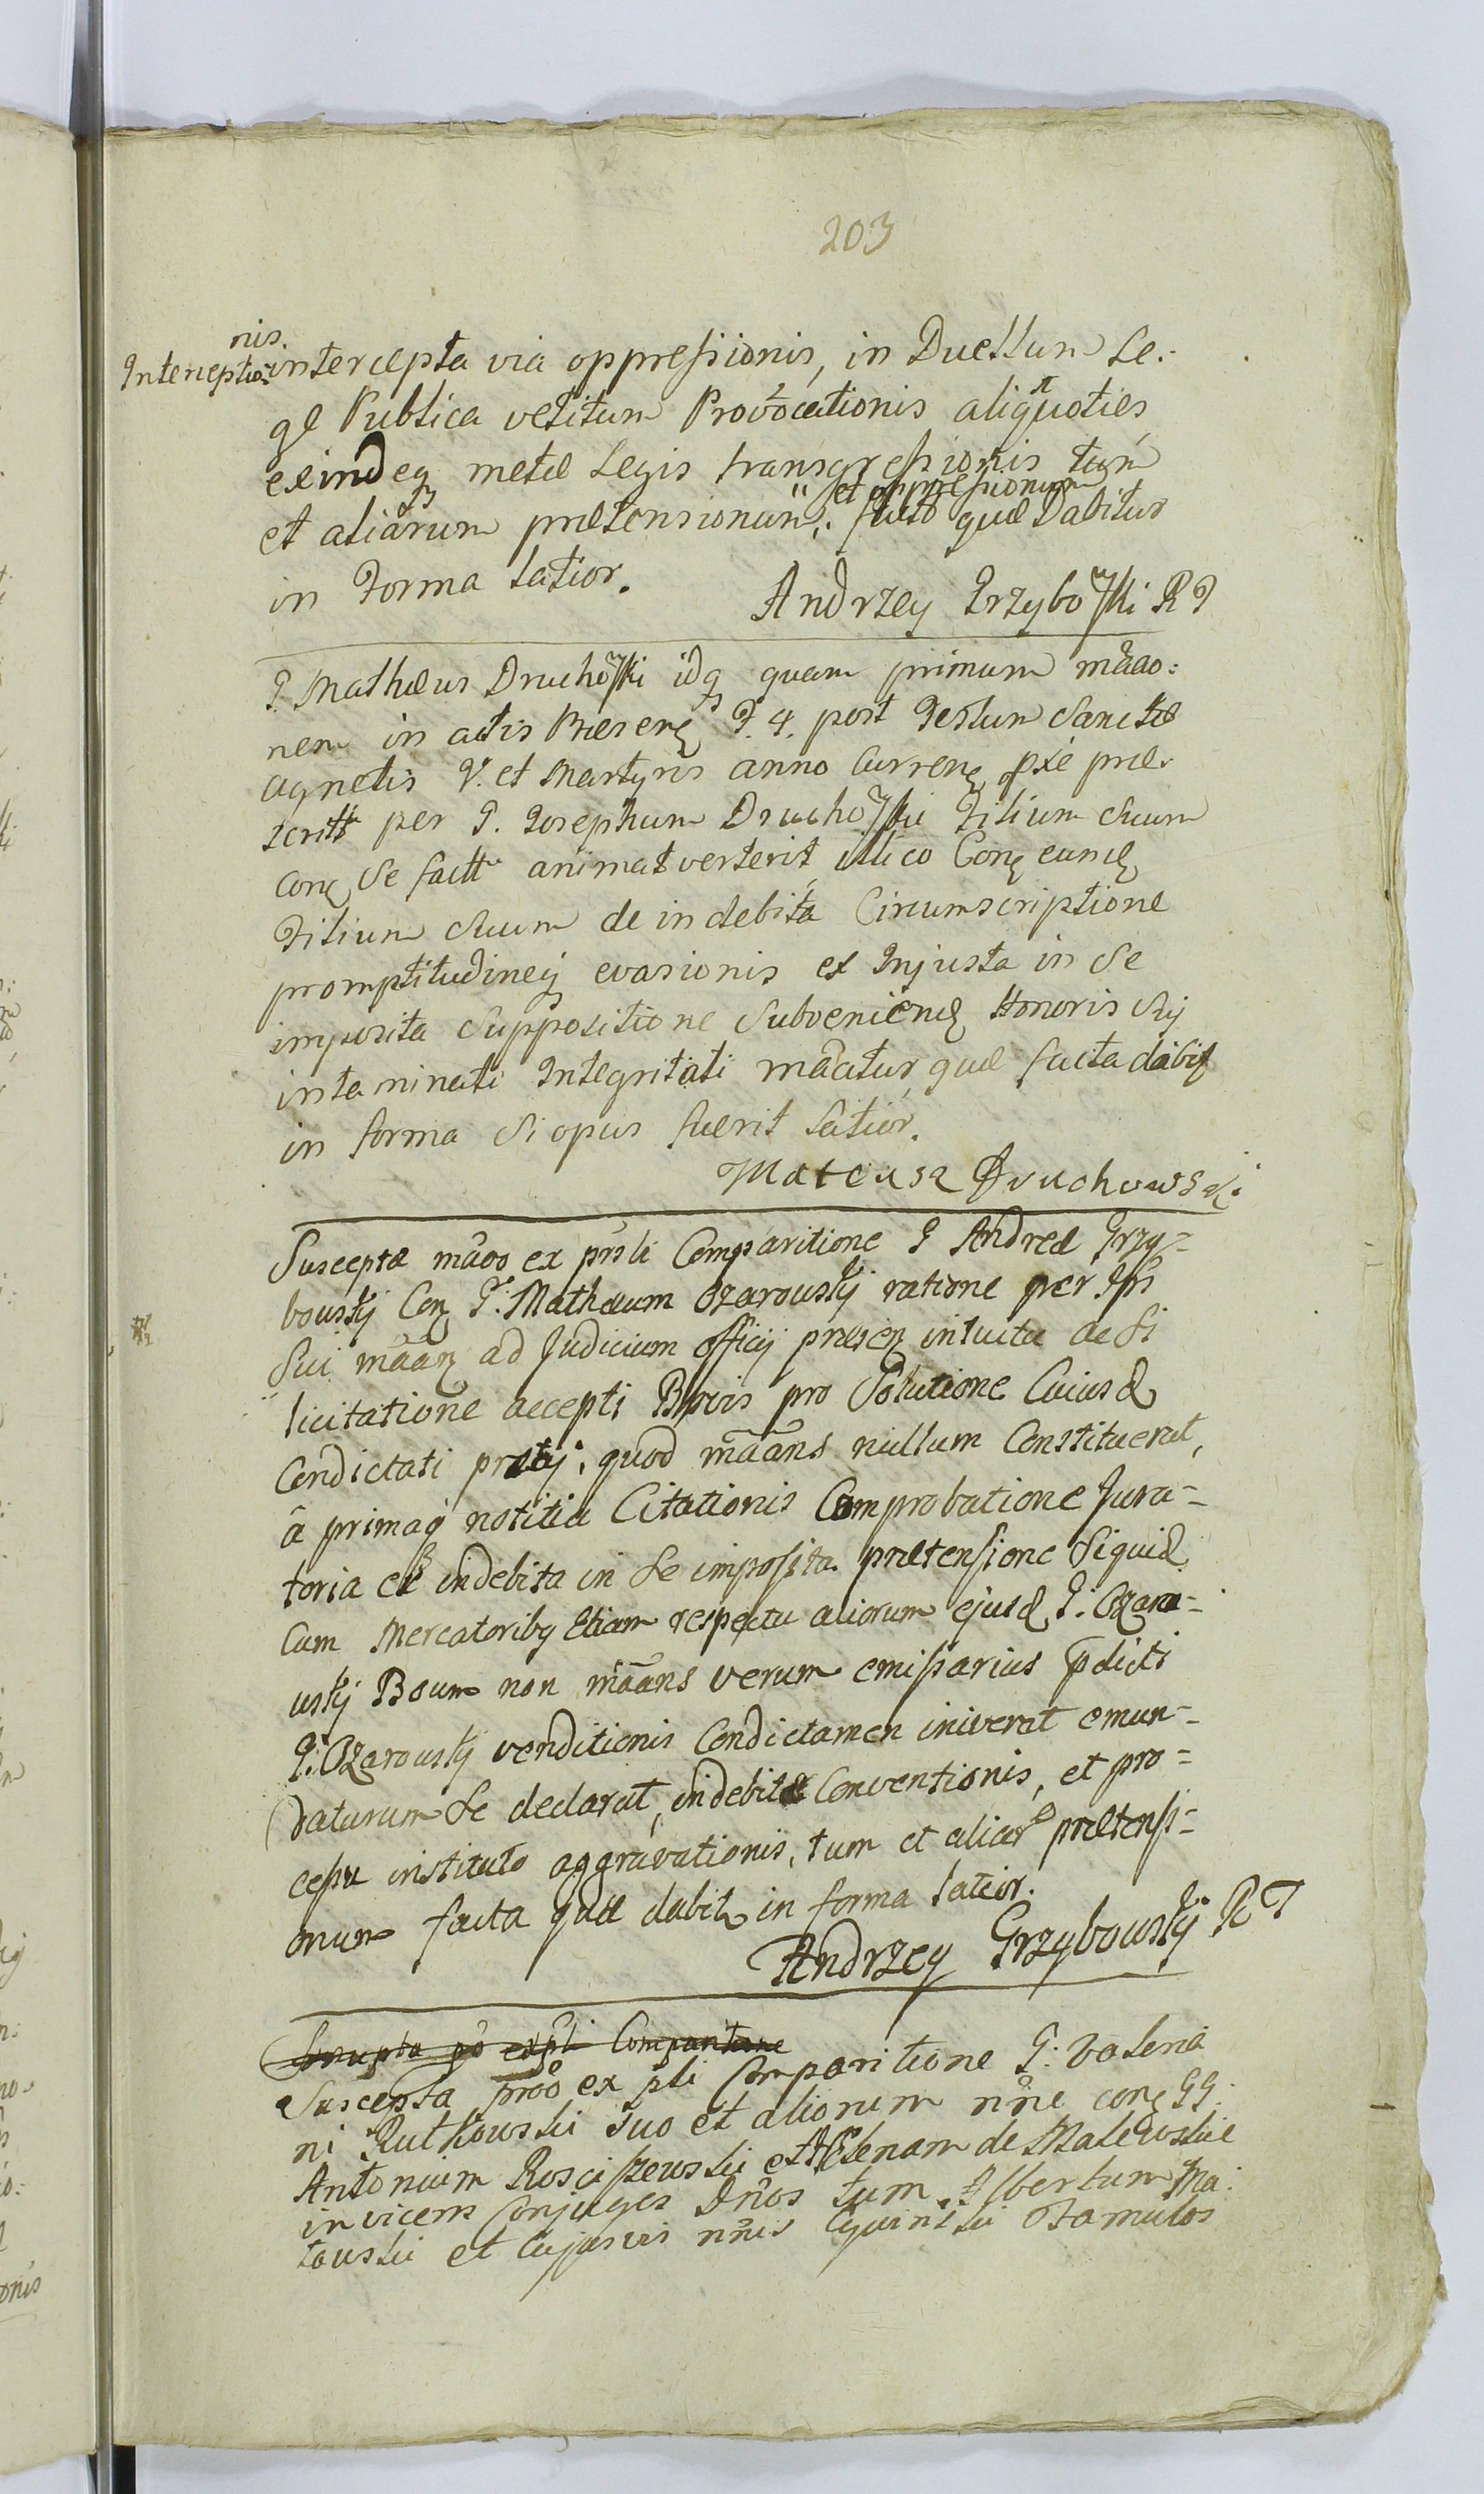 203
nis.
Interceptio= intercepta via oppressionis, in Duellum Le:
ge Publica vetitum Provocationis aliquoties
exindeq metae Legis transgressionis tum
et oppressionum
et aliarum praetensionum, facto quae Dabitur
in Forma Latior.
Andrzey Grzybowski R P
G Mathaeus Druchowski idq quam primum mãao:
nem in actis Praesenę F. 4. post Festum Sanctae
Agnetis V. et Martyris anno Currenę pxie prae.
scritt per G. Josephum Druchowski Filium Suum
conę Se factt animatverterit, illico Conę eundę
Filium Suum de indebita Circumscriptione
promptitudineq evasionis ex Injusta in Se
imposita Suppositione Subveniendę Honoris Sŷ
intaminati Integritati mãatur, quae facta dabit
in forma Si opus fuerit Latior.
Mateusz Druchowski
Suscepta mãao ex prsli Comparitione G Andreae Grzy=
bowskij Conę G: Mathaeum Ozarowskij ratione per Ipsi
Sui mãanę ad Judicium Officij praesenę intuitu de Si
licitatione accepti Bovis pro Solutione Cuiusd
Condictati pretij, quod mãans nullum Constituerat,
â primaq notitia Citationis Comprobatione Jura=
toria ex indebita in Se imposita praetensione Siquid
Cum Mercatoribq Etiam respectu aliorum ejusd G: Ozaro=
wskij Boum non mãans verum emissarius pdicti
G: Ozarowskij venditionis Condictamen iniverat emun=
daturum Se declarat, indebitae Conventionis, et pro=
cessu instituto aggravationis, tum et aliar praetensi=
onum facta quae dabit in forma Latior.
Andrzey Grzybowskij R P
Suscepta põ ex pli Comparitione
Suscepta proõ ex pli Comparitione G: Valeria
ni Rutkowski Suo et aliorum nñe conę GG:
Antonium Rosciszewski et Helenam de Malewskie
invicem Conjuges Dños tum Albertum Ma:
kowski et Cujusvis nñis Famulos